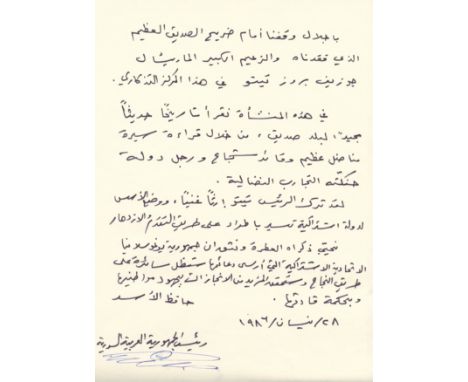 باجلال وقفنا أمام ضريح الصديق العظيم
الذي فقدناه والزعيم الكبير الماريشال
جوزيف بروز تيتو في هذا المركز التذكاري.
في هذه المنشأة نقرأ تاريخاً حديثاً
مجيداً لبلد صديق، من خلال قراءة سيرة
مناضل عظيم وقائد شجاع ورجل دولة
حنكته التجارب النضالية.
لقد ترك الرئيس تيتو إرثاً غنياً، ووضع الأسس
لدولة اشتراكية تسير باطراد على طريق التقدم والازدهار
نحيي ذكراه العطرة ونثق أن جمهورية يوغوسلافيا
الاتحادية الاشتراكية التي أرسى دعائمها ستظل سائرة على
طريق النجاح وستحقق المزيد من الانجازات بجهود مواطنيها
وبحكمة قادتها.
حافظ الأسد
٢٨/نيسان/١٩٨٦
رئيس الجمهورية العربية السورية